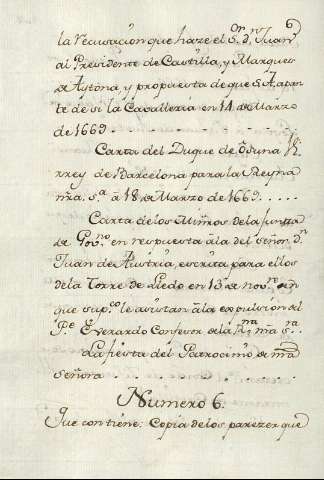 6
la Recusaçion que haze el S.ʳ D.ⁿ Juan
al Presidente de Castilla, y Marques
de Aytona, y propuesta de que S.A. apar
te de si la Cavalleria en 14 de Marzo
de 1669.
Carta del Duque de Osuna Vi
rrey de Barcelona para la Reyna
nra. S.ª â 18 de Marzo de 1669.....
Carta de los Minros de la Junta
de Gov.ⁿᵒ en respuesta âla del señor D.ⁿ
Juan de Austria, escrita para ellos
dela Torre de Lledo en 13 de nov.ʳᵉ en
que sup.ᶜᵒ le asistan âla expulsion del
P.ᵉ Everardo Confesor de la R.ⁿᵃ nra S.ʳᵃ
La fiesta del Patrocinio de nra
Señora
Numero 6.
Que contiene: Copia de los parezer que